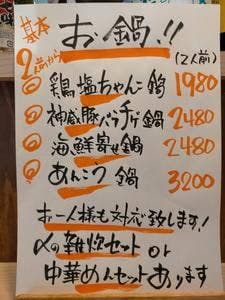 基本
お鍋!!
2人前から
(2人前)
鶏塩ちゃんこ鍋 1980
神威豚バラチゲ鍋 2480
海鮮寄せ鍋 2480
あんこう鍋 3200
お一人様も対応致します!
〆の雑炊セット or
中華めんセットあります